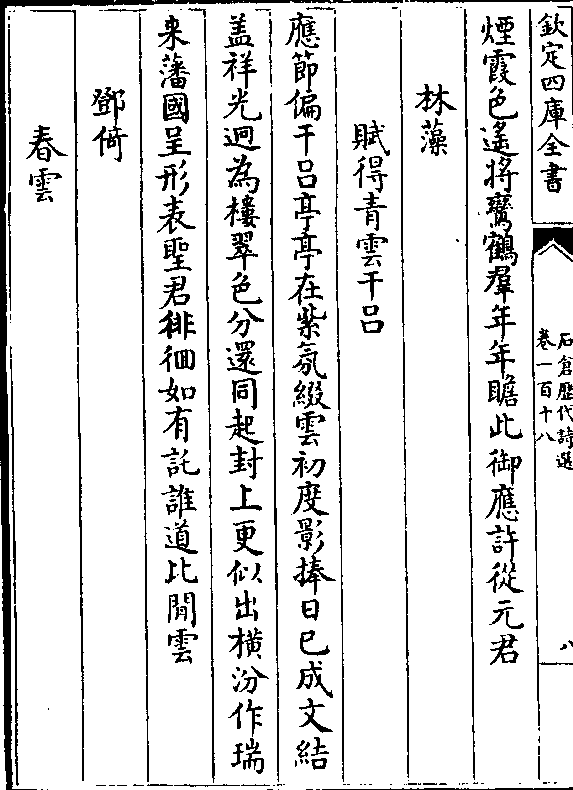 欽定四庫全書
石倉歷代詩選
卷一百十八
八
煙霞色遙將鸞鶴羣年年瞻此御應許從元君
林藻
賦得青雲干呂
應節偏干呂亭亭在紫氛綴雲初度影捧日已成文結
葢祥光迥為樓翠色分還同起封上更似出橫汾作瑞
来藩國呈形表聖君徘徊如有託誰道比閒雲
鄧倚
春雲